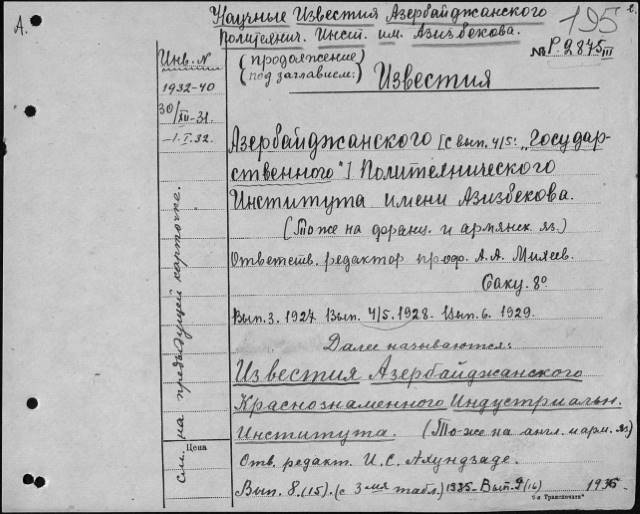 А.
Научные Известия Азербайджанского
Политехнич. Инст. им. Азизбекова.
195
№ Р.2875 III
Инв. №
(продолжение
под заглавием:)
Известия
1932-40
30/XII-31.
-1.I.32.
Азербайджанского [с вып. 4/5: „Государ-
ственного"] Политехнического
Института имени Азизбекова.
(То же на франц. и армянск. яз.)
Ответств. редактор проф. А.А. Михеев.
Баку. 8º
Вып. 3. 1927. Вып. 4/5. 1928. Вып. 6. 1929.
Далее называются:
Известия Азербайджанского
Краснознаменного Индустриальн.
Института. (То-же на англ. и арм. яз)
Отв. редакт. И.С. Ахундзаде.
Вып. 8.(15). (с 3-мя табл.) 1935- Вып. 9(16) 1936
см. на предыдущей карточке.
Цена
"Транспечати"